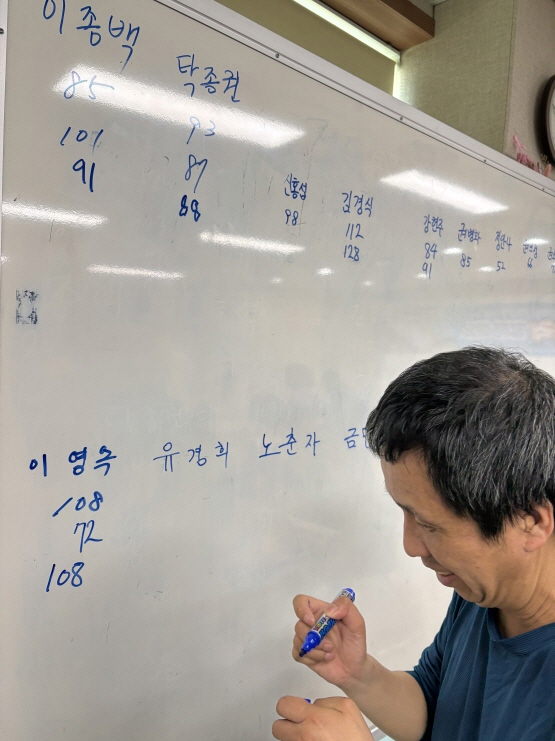 이종백
85
101
91
탁종권
93
87
88
신홍섭
98
김경식
112
128
강현주
84
91
85
52
이영숙
108
72
108
유경희
노춘자
금